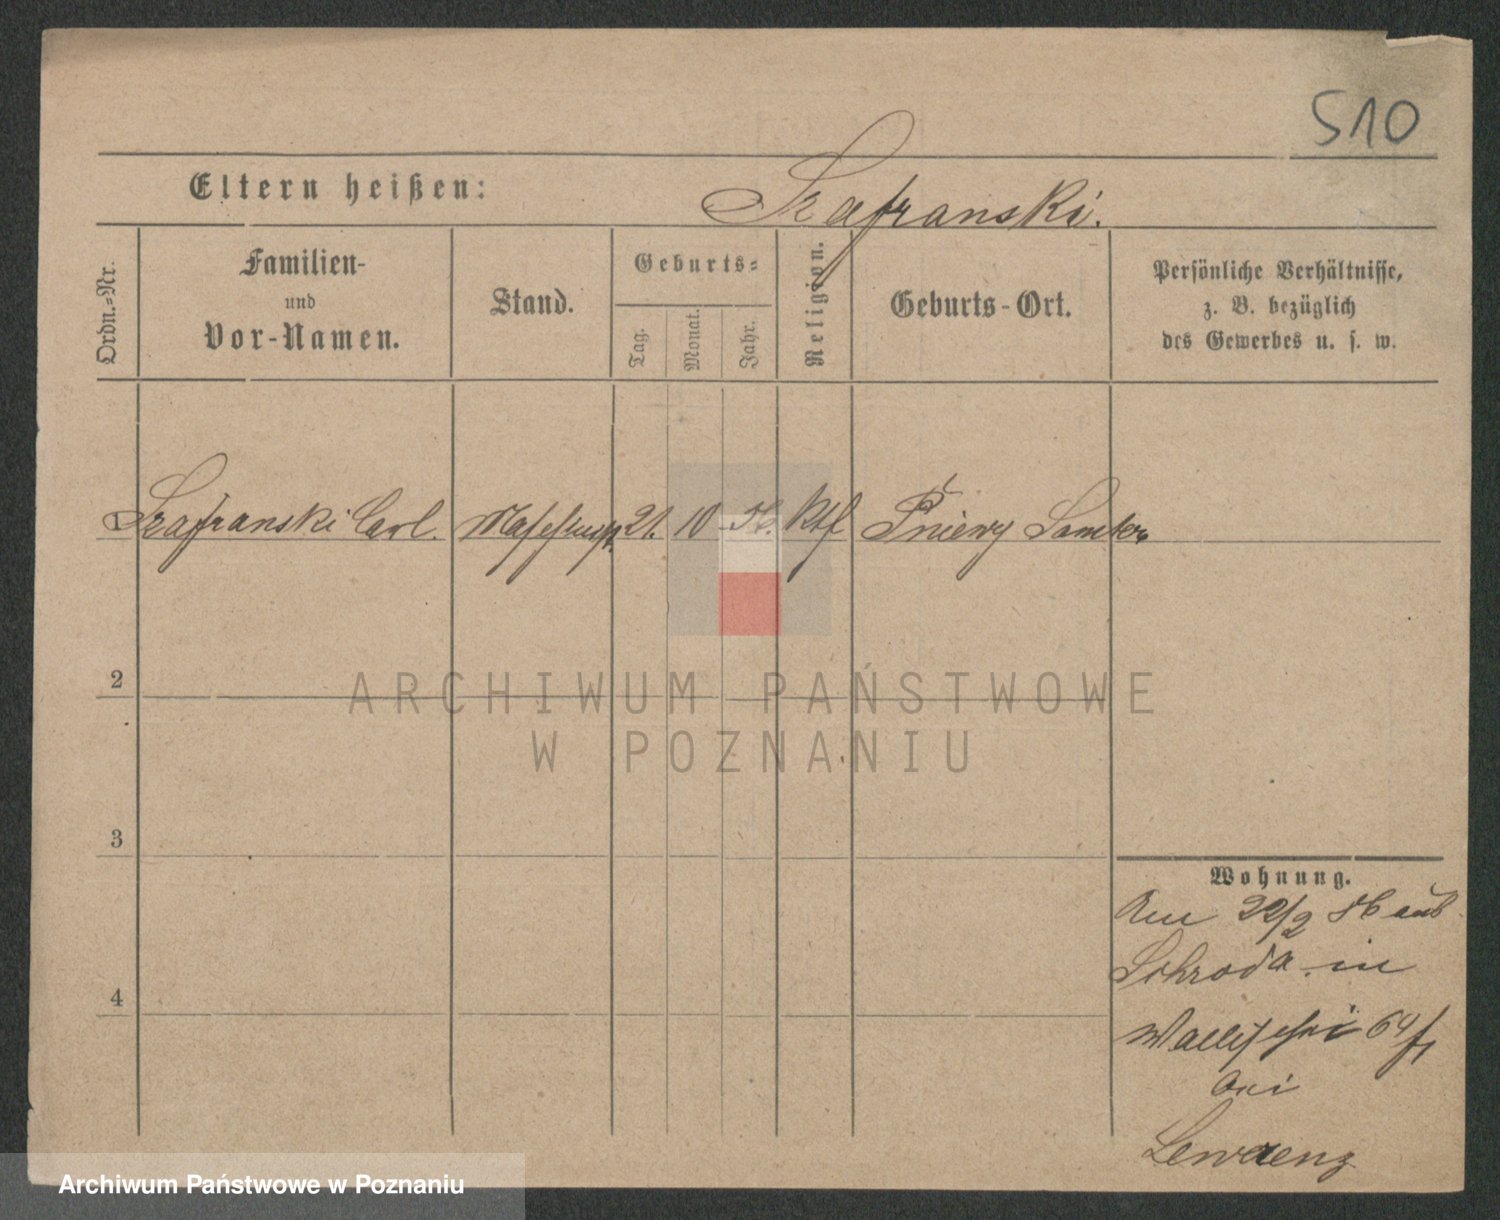 510
Eltern heißen: Szafranski.
Ordn.=Nr.
Familien-
und
Vor-Namen.
Stand.
Geburts=
Tag.
Monat.
Jahr.
Religion.
Geburts-Ort.
Persönliche Verhältnisse,
z. B. bezüglich
des Gewerbes u. s. w.
Szafranski Carl. 21. 10 Ktl Pniewy Samter
2
3
4
Wohnung.
Am 22/2 86 aus
Schroda in
Wallischei 64/1
bei
ARCHIWUM PAŃSTWOWE
W POZNANIU
Archiwum Państwowe w Poznaniu